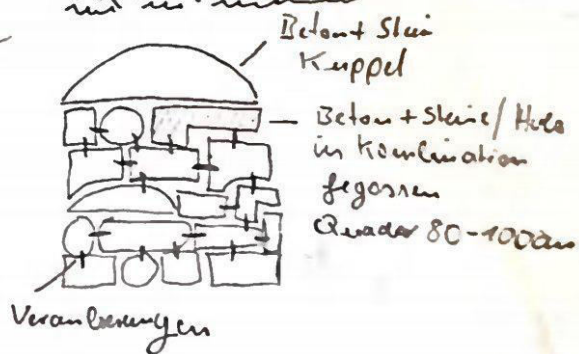 Beton + Stein
Kuppel
Beton + Steine / Holz
in Kombination
gegossen
Quader 80-100cm
Verankerungen